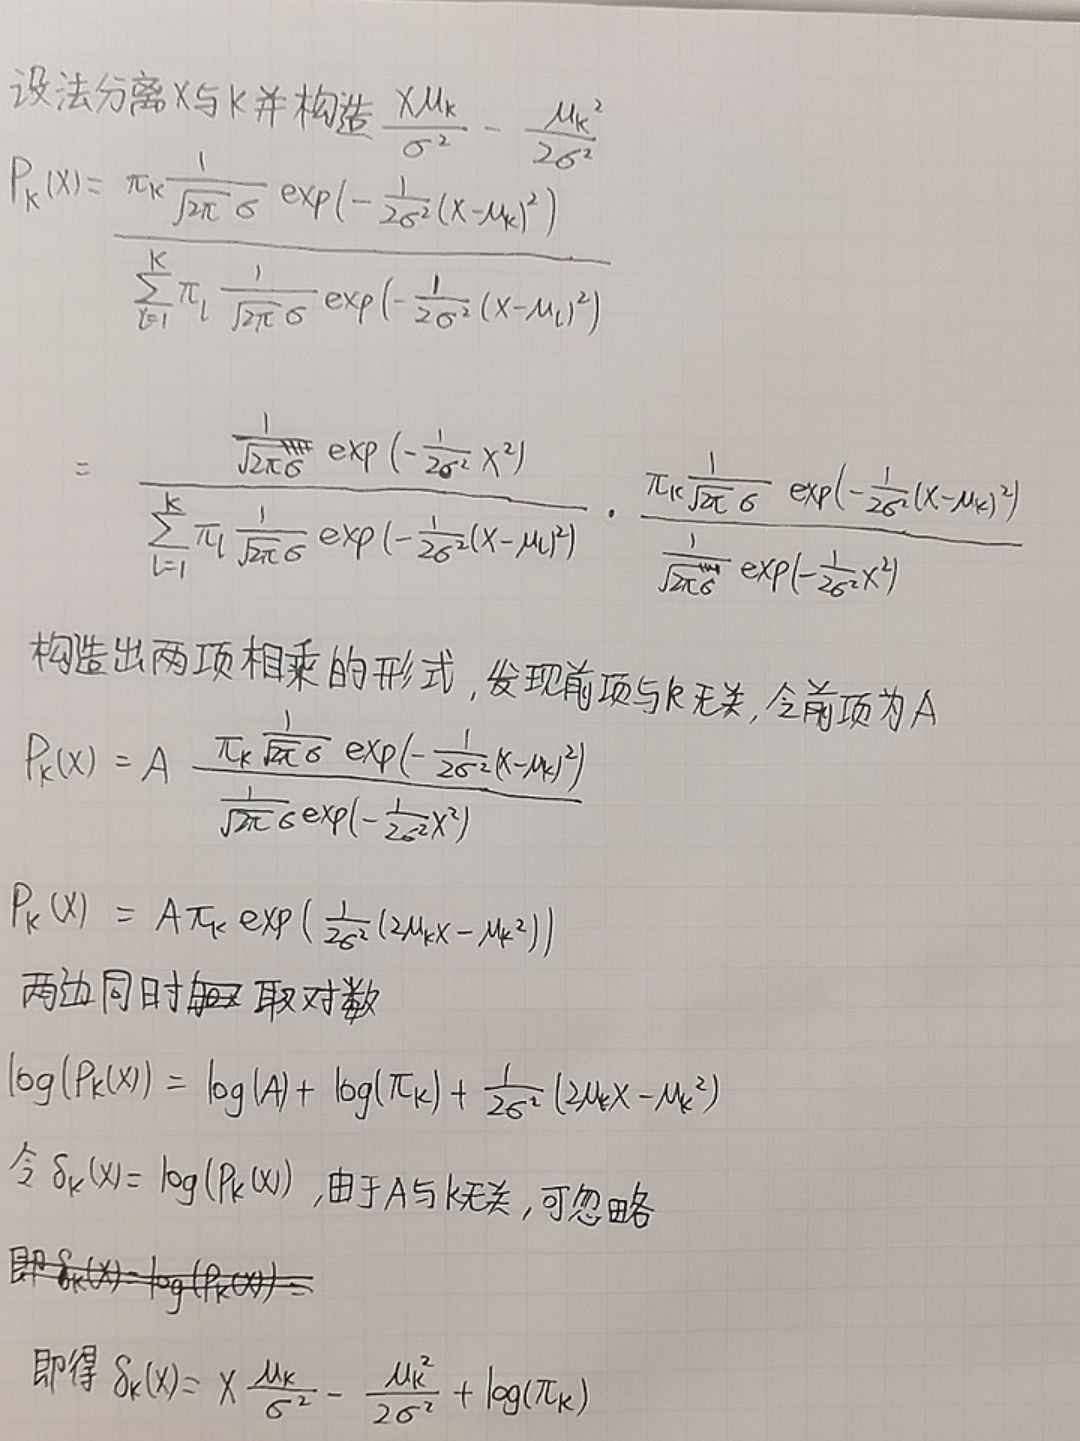 设法分离X与K并构造 \frac{Xμ_K}{σ^2} - \frac{μ_K^2}{2σ^2}
P_K(X) = \frac{π_K \frac{1}{\sqrt{2π}σ} exp(-\frac{1}{2σ^2}(X-μ_K)^2)}{\sum_{l=1}^{K} π_l \frac{1}{\sqrt{2π}σ} exp(-\frac{1}{2σ^2}(X-μ_l)^2)}
= \frac{\frac{1}{\sqrt{2π}σ} exp(-\frac{1}{2σ^2}X^2)}{\sum_{l=1}^{K} π_l \frac{1}{\sqrt{2π}σ} exp(-\frac{1}{2σ^2}(X-μ_l)^2)} · \frac{π_K \frac{1}{\sqrt{2π}σ} exp(-\frac{1}{2σ^2}(X-μ_K)^2)}{\frac{1}{\sqrt{2π}σ} exp(-\frac{1}{2σ^2}X^2)}
构造出两项相乘的形式,发现前项与k无关,令前项为A
P_K(X) = A \frac{π_K \frac{1}{\sqrt{2π}σ} exp(-\frac{1}{2σ^2}(X-μ_K)^2)}{\frac{1}{\sqrt{2π}σ} exp(-\frac{1}{2σ^2}X^2)}
P_K(X) = Aπ_K exp(\frac{1}{2σ^2}(2μ_KX-μ_K^2))
两边同时取对数
log(P_K(X)) = log(A) + log(π_K) + \frac{1}{2σ^2}(2μ_KX-μ_K^2)
令 δ_K(X) = log(P_K(X)),由于A与K无关,可忽略
即 δ_K(X) = log(P_K(X)) =
即得 δ_K(X) = X \frac{μ_K}{σ^2} - \frac{μ_K^2}{2σ^2} + log(π_K)